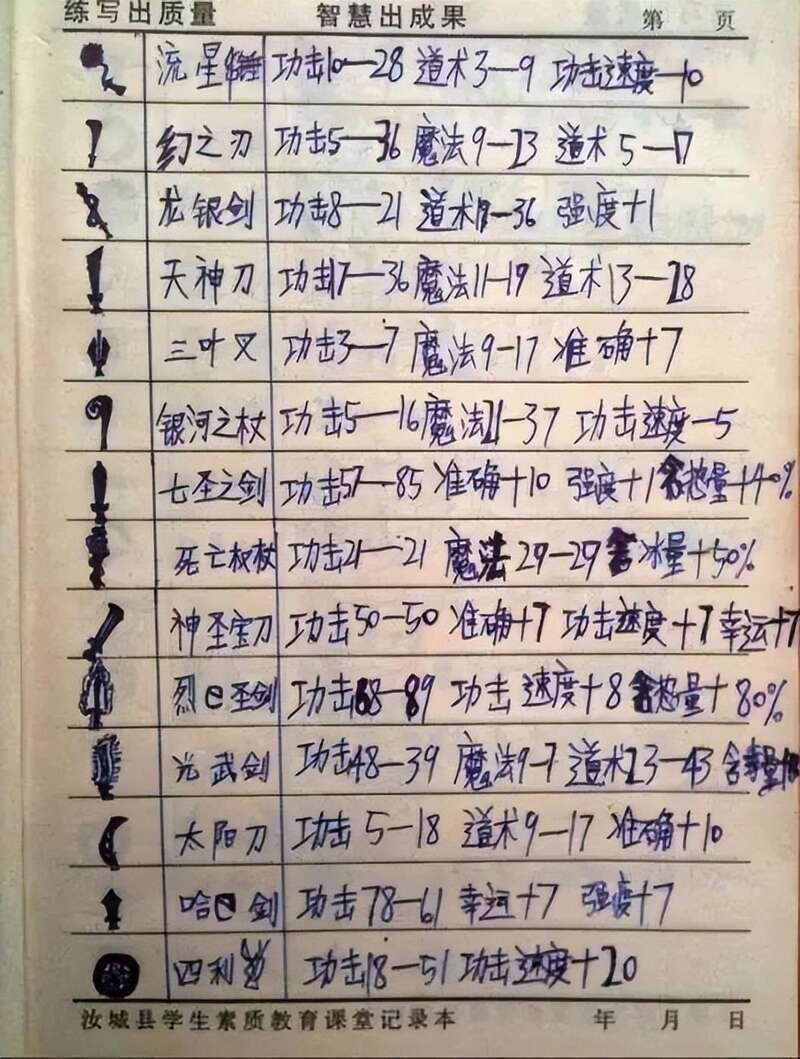 练写出质量 智慧出成果 第 页
流星 功击10—28 道术3—9 功击速度—10
幻之刃 功击5—36 魔法9—23 道术5—17
龙银剑 功击8—21 道术18—36 强度+1
天神刀 功击17—36 魔法11—19 道术13—28
三叶叉 功击3—7 魔法9—17 准确+7
银河之杖 功击5—16 魔法21—37 功击速度—5
七圣之剑 功击57—85 准确+10 强度+1 含热量+40%
死亡权杖 功击21—21 魔法29—29 含冰量+50%
神圣宝刀 功击50—50 准确+7 功击速度+7 幸运+7
烈e圣剑 功击68—89 功击速度+8 含热量+80%
光武剑 功击48—39 魔法9—7 道术23—43 含毒量
太阳刀 功击5—18 道术9—17 准确+10
哈e剑 功击78—61 幸运+7 强度+7
四利 功击18—51 功击速度+20
汝城县学生素质教育课堂记录本 年 月 日